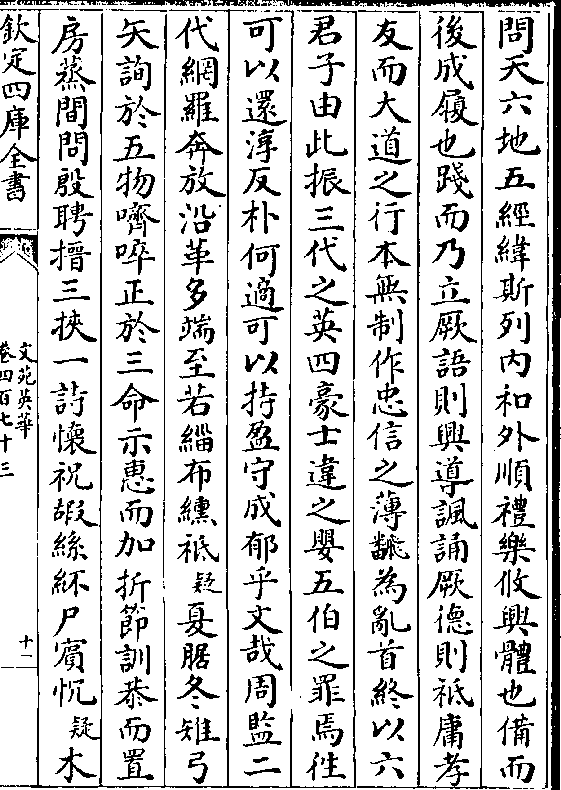 問天六地五經緯斯列内和外順禮樂攸興體也備而
後成履也踐而乃立厥語則興導諷誦厥德則祗庸孝
友而大道之行本無制作忠信之薄飜為亂首終以六
君子由此振三代之英四豪士違之嬰五伯之罪焉徃
可以還淳反朴何適可以持盈守成郁乎文哉周監二
代網羅奔放沿革多端至若緇布纁袛疑夏腒冬雉弓
矢詢於五物嚌啐正於三命示惠而加折節訓恭而置
房蒸間問殷聘搢三挾一詩懷祝嘏絲紑尸賓怳疑木
欽定四庫全書
文苑英華
卷四百七十三
十一